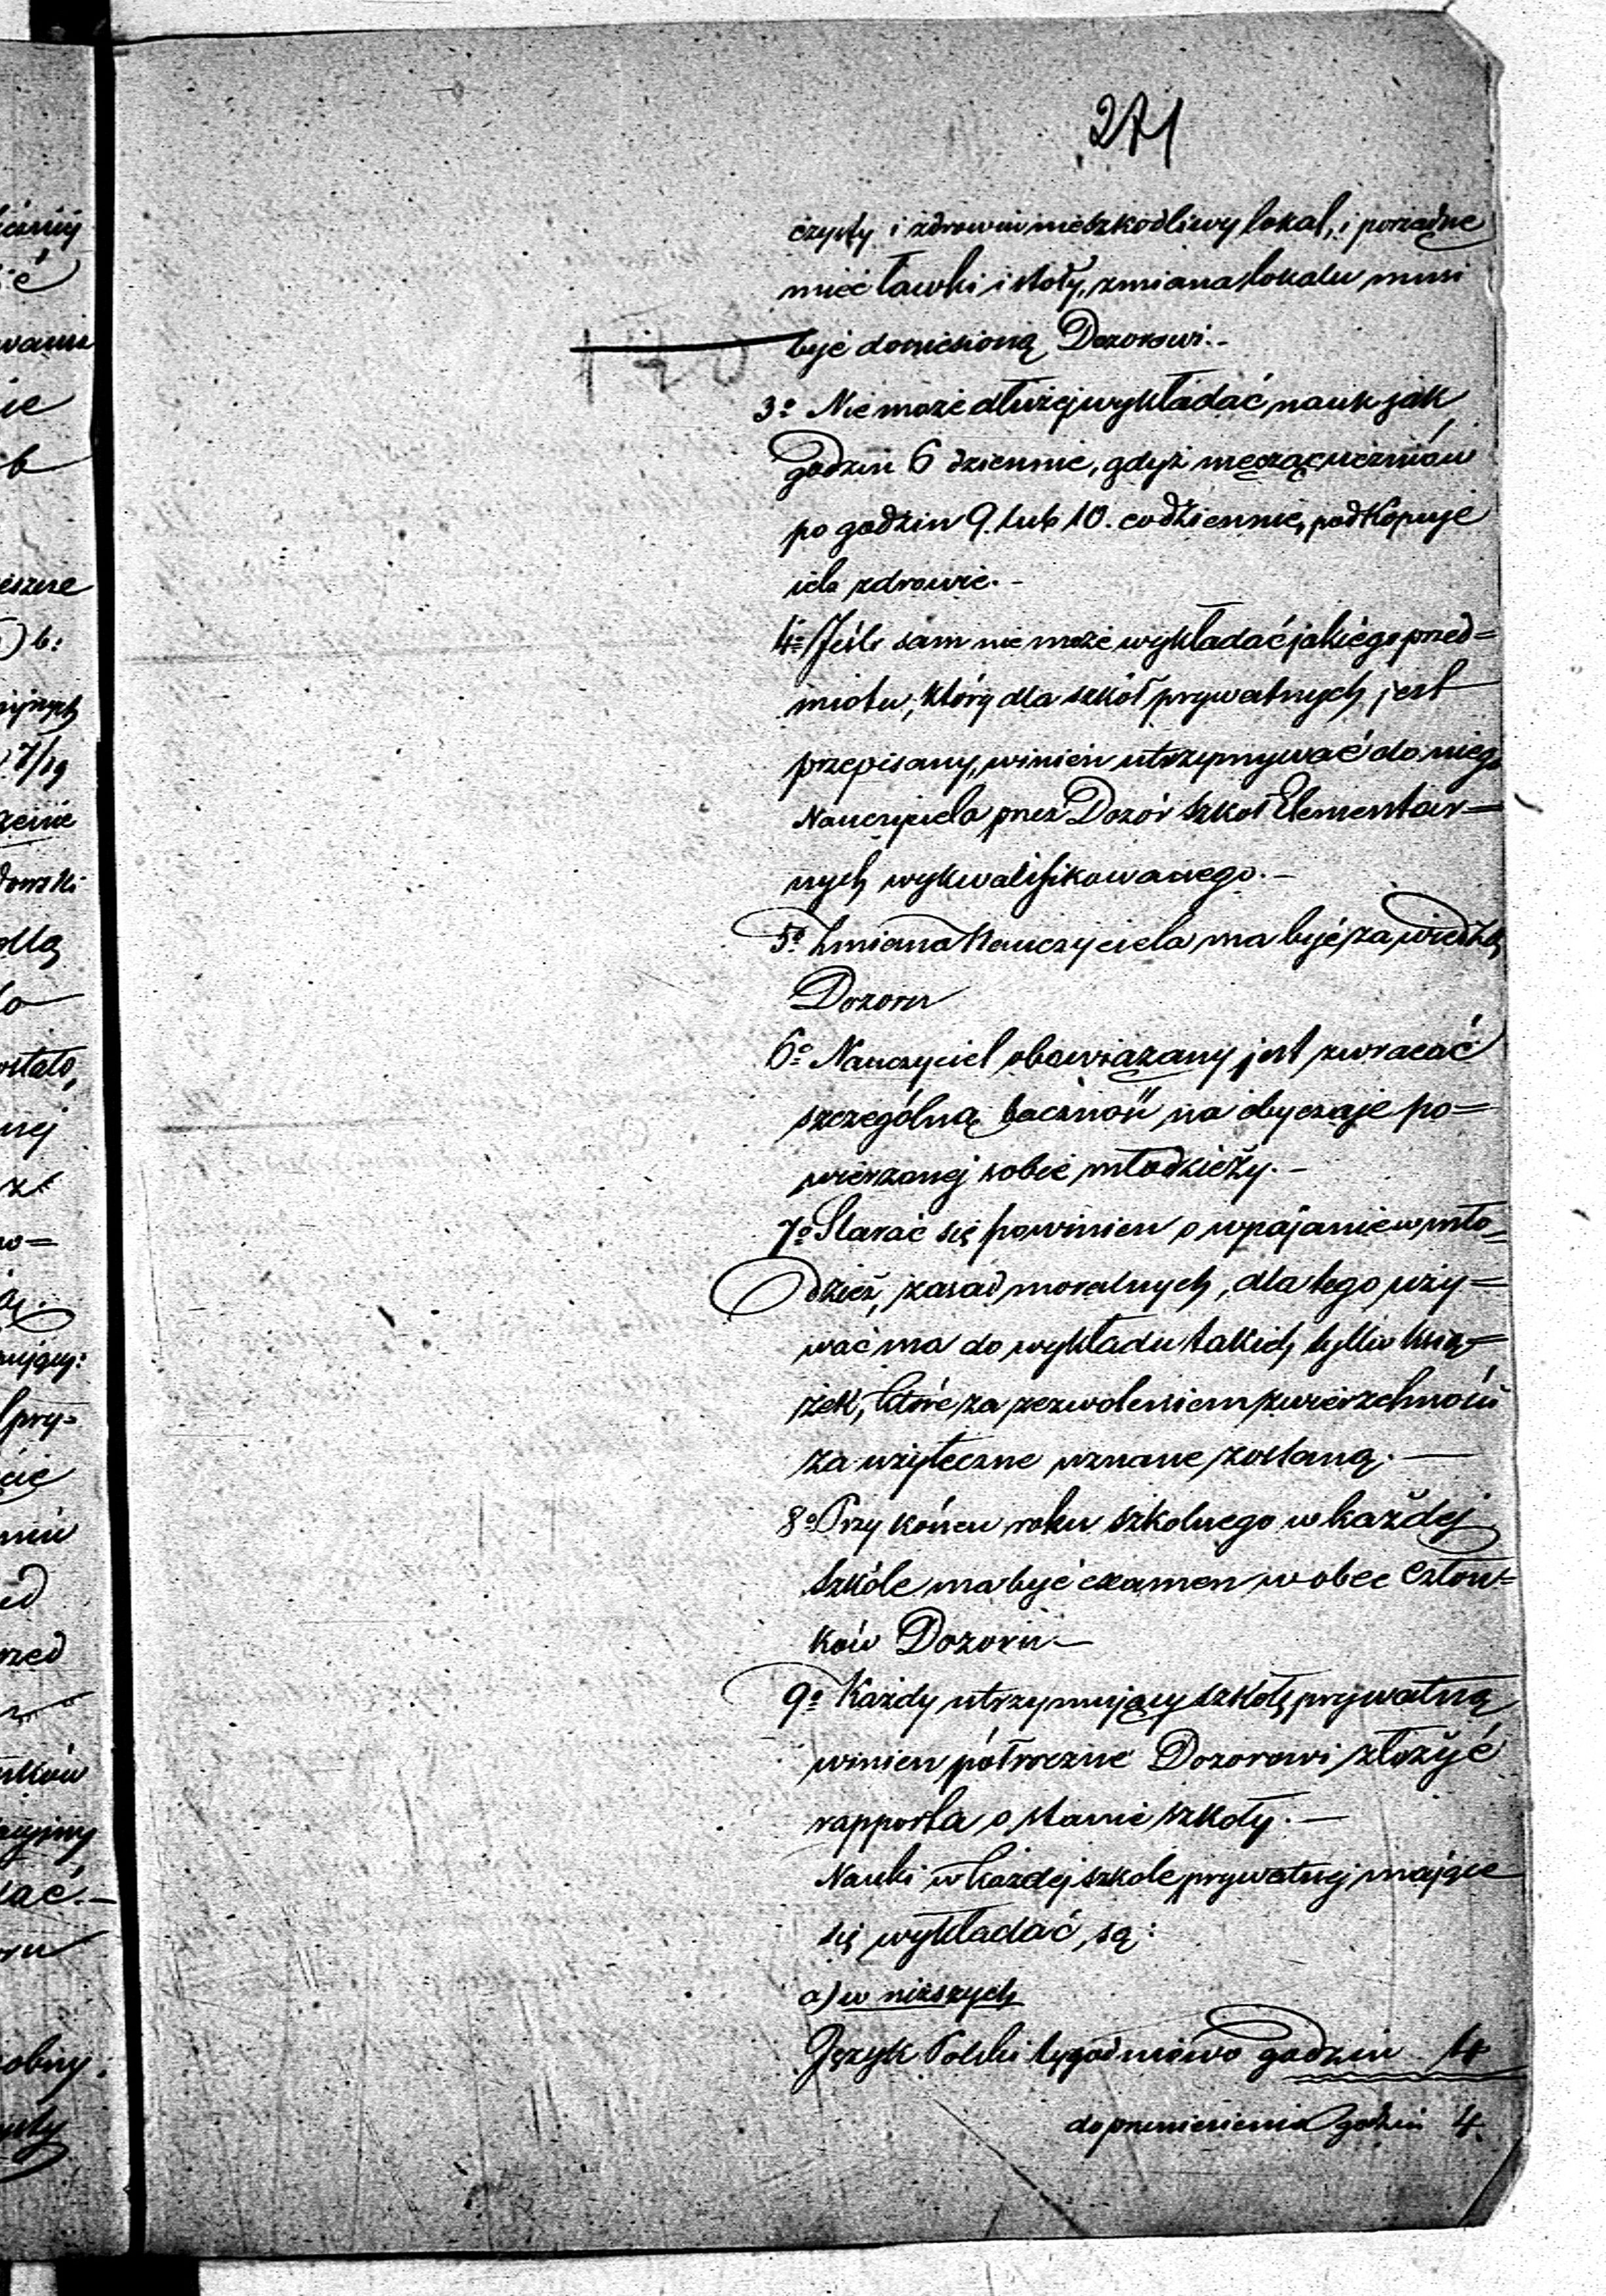 271
czysty i zdrowiu nieszkodliwy lokal, i porządne
mieć ławki i stoły, zmiana lokalu musi
być doniesioną Dozorowi.-
3o Nie może dłużej wykładać nauk jak
godzin 6 dziennie, gdyż męcząc uczniów
po godzin 9. lub 10. codziennie, podkopuje
ich zdrowie.-
4o Jeśli sam nie może wykładać jakiego przed=
miotu, który dla szkół prywatnych jest
przepisany, winien utrzymywać do niego
Nauczyciela przez Dozór Szkół Elementar=
nych wykwalifikowanego.-
5o Zmiana Nauczyciela ma być za wiedzą
Dozoru
6o Nauczyciel obowiązany jest zwracać
szczególną baczność na obyczaje po=
wierzonej sobie młodzieży.-
7o Starać się powinien o wpajanie w mło=
dzież, zasad moralnych, dla tego uży=
wać ma do wykładu takich tylko ksią=
żek, które za zezwoleniem zwierzchności
za użyteczne uznane zostaną.-
8o Przy końcu roku szkolnego w każdej
szkóle ma być examen w obec Człon=
ków Dozoru-
9o Każdy utrzymujący szkołę prywatną
winien półrocznie Dozorowi złożyć
rapporta o stanie szkoły.-
Nauki w każdej szkole prywatnej mające
się wykładać, są:
a) w niższych
Język Polski tygodniowo godzin 4
do przeniesienia godzin 4.